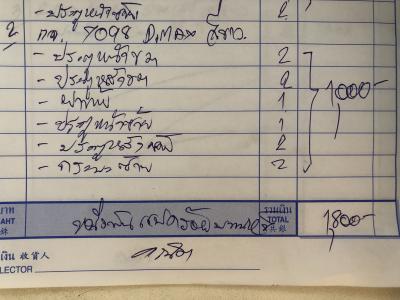 - ประตูหน้าซ้าย 2
2 กฉ 7098 D.max สีขาว.
- ประตูหน้าขวา 2
- ประตูหลังขวา 2
- ฝาท้าย 1
- ประตูหน้าซ้าย 1
- ประตูหลังซ้าย 2
- กระบะซ้าย 2
1,000-
บาท BAHT 銖
หนึ่งพันแปดร้อยบาท
รวมเงิน TOTAL 共銀
1,800-
เงิน 收貨人
LLECTOR